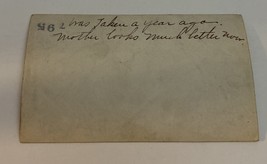 962 was taken a year ago.
Mother looks much better now